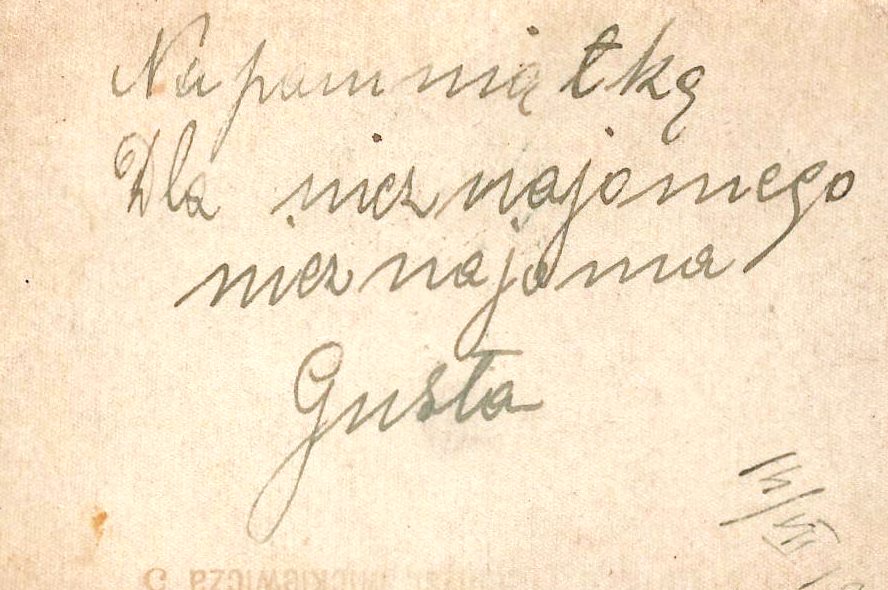 Na pamniątkę
Dla nieznajomego
nieznajoma
Gusta
14/VII